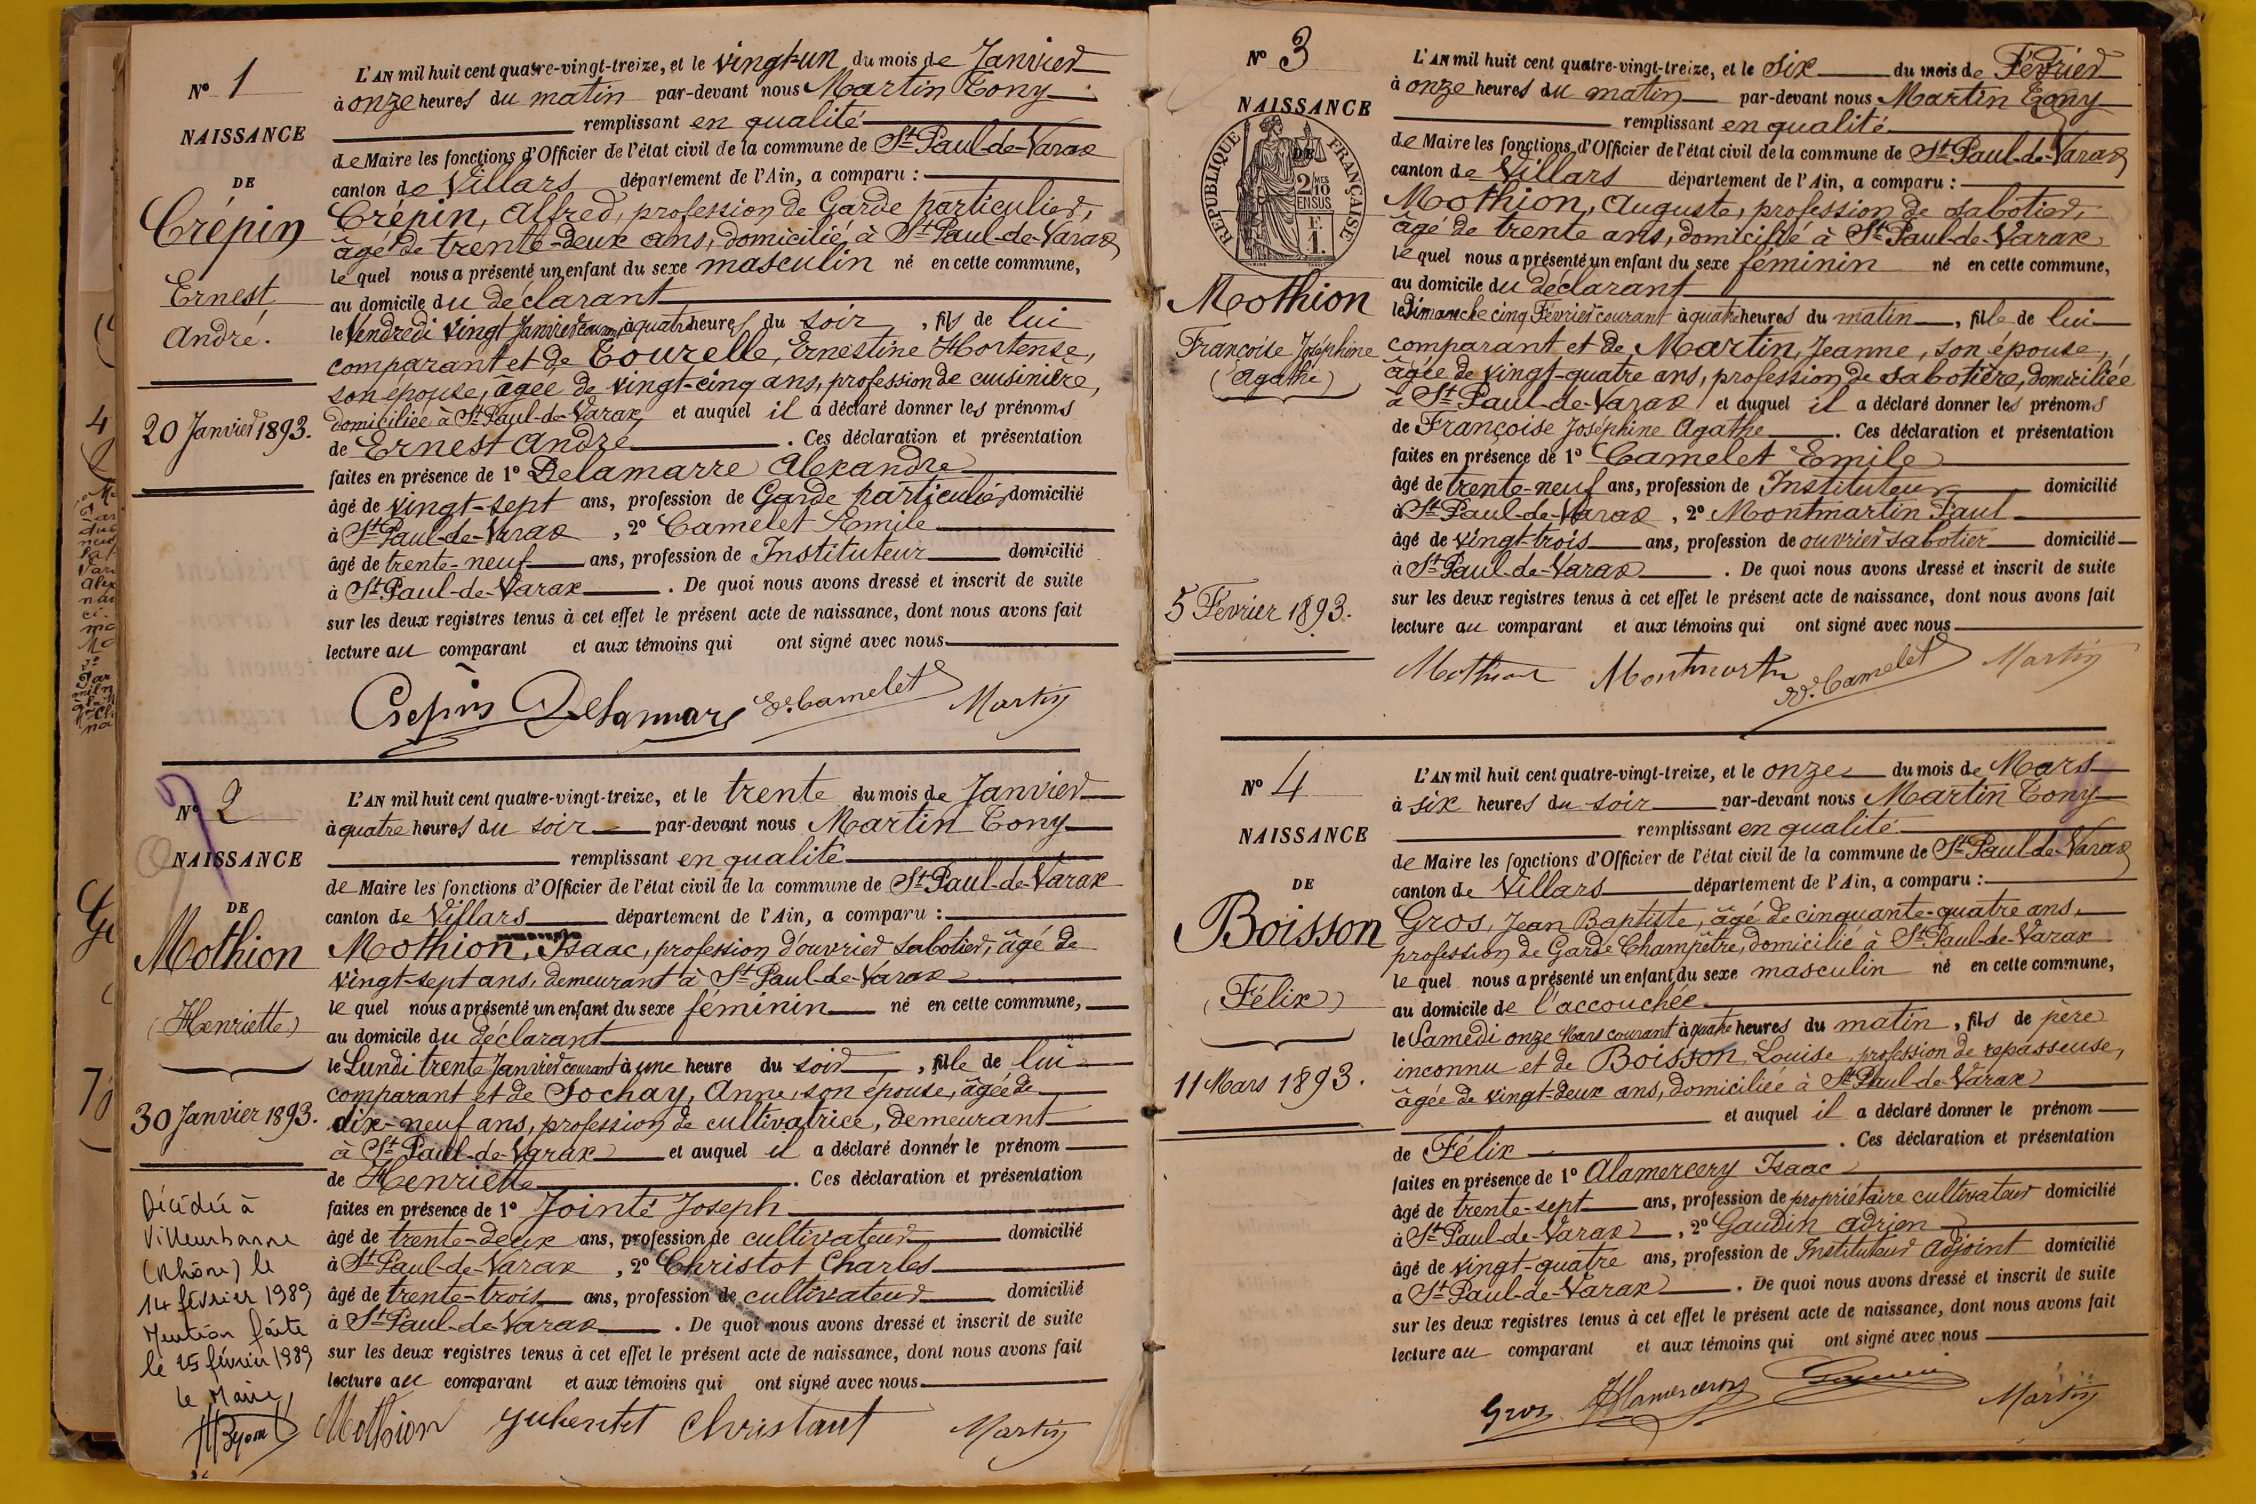 Nº 1
NAISSANCE
DE
Crépin
Ernest
André.
20 Janvier 1893.
L'AN mil huit cent quatre-vingt-treize, et le vingt-un du mois de Janvier
à onze heures du matin par-devant nous Martin Tony
remplissant en qualité
de Maire les fonctions d'Officier de l'état civil de la commune de St Paul-de-Varax
canton de Villars département de l'Ain, a comparu :
Crépin, Alfred, profession de Garde particulier,
âgé de trente-deux ans, domicilié à St Paul-de-Varax
le quel nous a présenté un enfant du sexe masculin né en cette commune,
au domicile du déclarant
le Vendredi vingt Janvier courant à quatre heures du soir, fils de lui
comparant et de Tourelle, Ernestine Hortense,
son épouse, âgée de vingt-cinq ans, profession de cuisinière,
domiciliée à St Paul-de-Varax et auquel il a déclaré donner les prénoms
de Ernest André. Ces déclaration et présentation
faites en présence de 1º Delamarre Alexandre
âgé de vingt-sept ans, profession de Garde particulier domicilié
à St Paul-de-Varax, 2º Camelet Emile
âgé de trente-neuf ans, profession de Instituteur domicilié
à St Paul-de-Varax. De quoi nous avons dressé et inscrit de suite
sur les deux registres tenus à cet effet le présent acte de naissance, dont nous avons fait
lecture au comparant et aux témoins qui ont signé avec nous
Crépin Delamare E. Camelet Martin
Nº 2
NAISSANCE
DE
Mothion
(Henriette)
30 Janvier 1893.
Décédée à
Villeurbanne
(Rhône) le
14 février 1989
Mention faite
le 15 février 1989
le Maire,
L'AN mil huit cent quatre-vingt-treize, et le trente du mois de Janvier
à quatre heures du soir par-devant nous Martin Tony
remplissant en qualité
de Maire les fonctions d'Officier de l'état civil de la commune de St Paul-de-Varax
canton de Villars département de l'Ain, a comparu :
Mothion, Isaac, profession d'ouvrier sabotier, âgé de
vingt-sept ans, demeurant à St Paul-de-Varax
le quel nous a présenté un enfant du sexe féminin né en cette commune,
au domicile du déclarant
le Lundi trente Janvier courant à une heure du soir, fille de lui
comparant et de Sochay, Anne, son épouse, âgée de
dix-neuf ans, profession de cultivatrice, demeurant
à St Paul-de-Varax et auquel il a déclaré donner le prénom
de Henriette. Ces déclaration et présentation
faites en présence de 1º Jointé Joseph
âgé de trente-deux ans, profession de cultivateur domicilié
à St Paul-de-Varax, 2º Christot Charles
âgé de trente-trois ans, profession de cultivateur domicilié
à St Paul-de-Varax. De quoi nous avons dressé et inscrit de suite
sur les deux registres tenus à cet effet le présent acte de naissance, dont nous avons fait
lecture au comparant et aux témoins qui ont signé avec nous
Mothion Martin
Nº 3
NAISSANCE
DE
RÉPUBLIQUE FRANÇAISE
2/10 MES
EN SUS
F.
1.
Mothion
Françoise Joséphine
(Agathe)
5 Février 1893.
L'AN mil huit cent quatre-vingt-treize, et le six du mois de Février
à onze heures du matin par-devant nous Martin Tony
remplissant en qualité
de Maire les fonctions d'Officier de l'état civil de la commune de St Paul-de-Varax
canton de Villars département de l'Ain, a comparu :
Mothion, Auguste, profession de sabotier,
âgé de trente ans, domicilié à St Paul-de-Varax
le quel nous a présenté un enfant du sexe féminin né en cette commune,
au domicile du déclarant
le Dimanche cinq Février courant à quatre heures du matin, fille de lui
comparant et de Martin, Jeanne, son épouse,
âgée de vingt-quatre ans, profession de sabotière, domiciliée
à St Paul-de-Varax et auquel il a déclaré donner les prénoms
de Françoise Joséphine Agathe. Ces déclaration et présentation
faites en présence de 1º Camelet Emile
âgé de trente-neuf ans, profession de Instituteur domicilié
à St Paul-de-Varax, 2º Montmartin Paul
âgé de vingt-trois ans, profession de ouvrier sabotier domicilié
à St Paul-de-Varax. De quoi nous avons dressé et inscrit de suite
sur les deux registres tenus à cet effet le présent acte de naissance, dont nous avons fait
lecture au comparant et aux témoins qui ont signé avec nous
Mothion Montmartin E. Camelet Martin
Nº 4
NAISSANCE
DE
Boisson
(Félix)
11 Mars 1893.
L'AN mil huit cent quatre-vingt-treize, et le onze du mois de Mars
à six heures du soir par-devant nous Martin Tony
remplissant en qualité
de Maire les fonctions d'Officier de l'état civil de la commune de St Paul-de-Varax
canton de Villars département de l'Ain, a comparu :
Gros, Jean Baptiste, âgé de cinquante-quatre ans,
profession de Garde Champêtre, domicilié à St Paul-de-Varax
le quel nous a présenté un enfant du sexe masculin né en cette commune,
au domicile de l'accouchée
le Samedi onze Mars courant à quatre heures du matin, fils de père
inconnu et de Boisson Louise, profession de repasseuse,
âgée de vingt-deux ans, domiciliée à St Paul-de-Varax
et auquel il a déclaré donner le prénom
de Félix. Ces déclaration et présentation
faites en présence de 1º Alamercery Isaac
âgé de trente-sept ans, profession de propriétaire cultivateur domicilié
à St Paul-de-Varax, 2º Gaudin Adrien
âgé de vingt-quatre ans, profession de Instituteur Adjoint domicilié
a St Paul-de-Varax. De quoi nous avons dressé et inscrit de suite
sur les deux registres tenus à cet effet le présent acte de naissance, dont nous avons fait
lecture au comparant et aux témoins qui ont signé avec nous
Gros Alamercery Martin